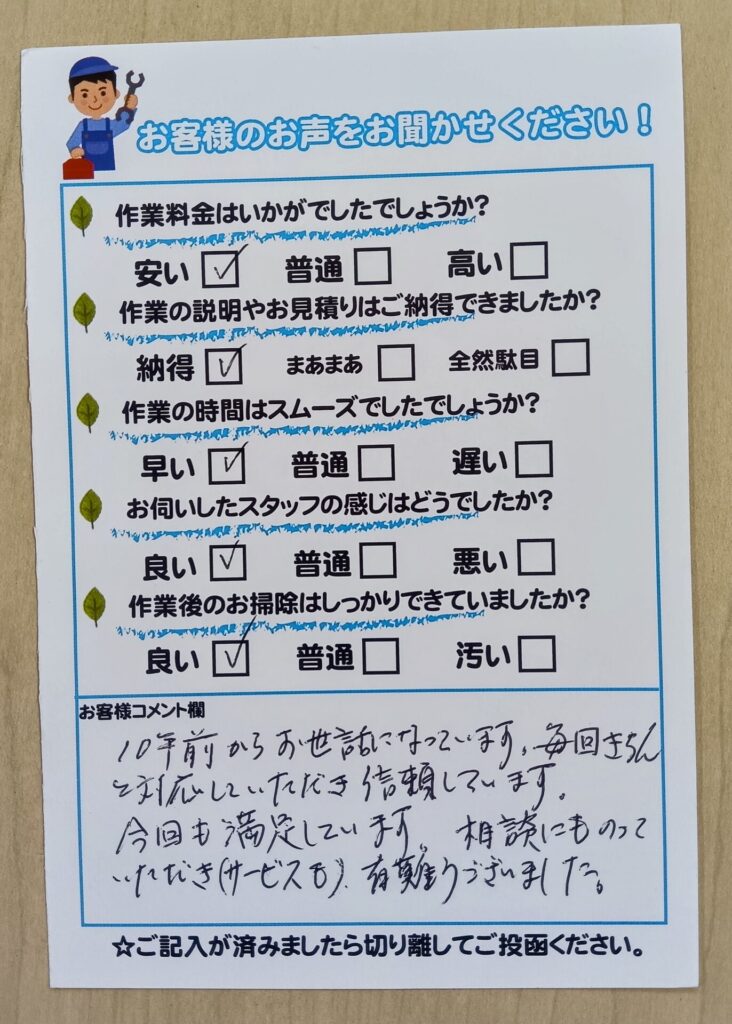 お客様のお声をお聞かせください！
作業料金はいかがでしたでしょうか？
安い ☑ 普通 □ 高い □
作業の説明やお見積りはご納得できましたか？
納得 ☑ まあまあ □ 全然駄目 □
作業の時間はスムーズでしたでしょうか？
早い ☑ 普通 □ 遅い □
お伺いしたスタッフの感じはどうでしたか？
良い ☑ 普通 □ 悪い □
作業後のお掃除はしっかりできていましたか？
良い ☑ 普通 □ 汚い □
お客様コメント欄
10年前からお世話になっています。毎回きちん
と対応していただき信頼しています。
今回も満足しています。相談にものって
いただき(サービスも)、有難うございました。
☆ご記入が済みましたら切り離してご投函ください。